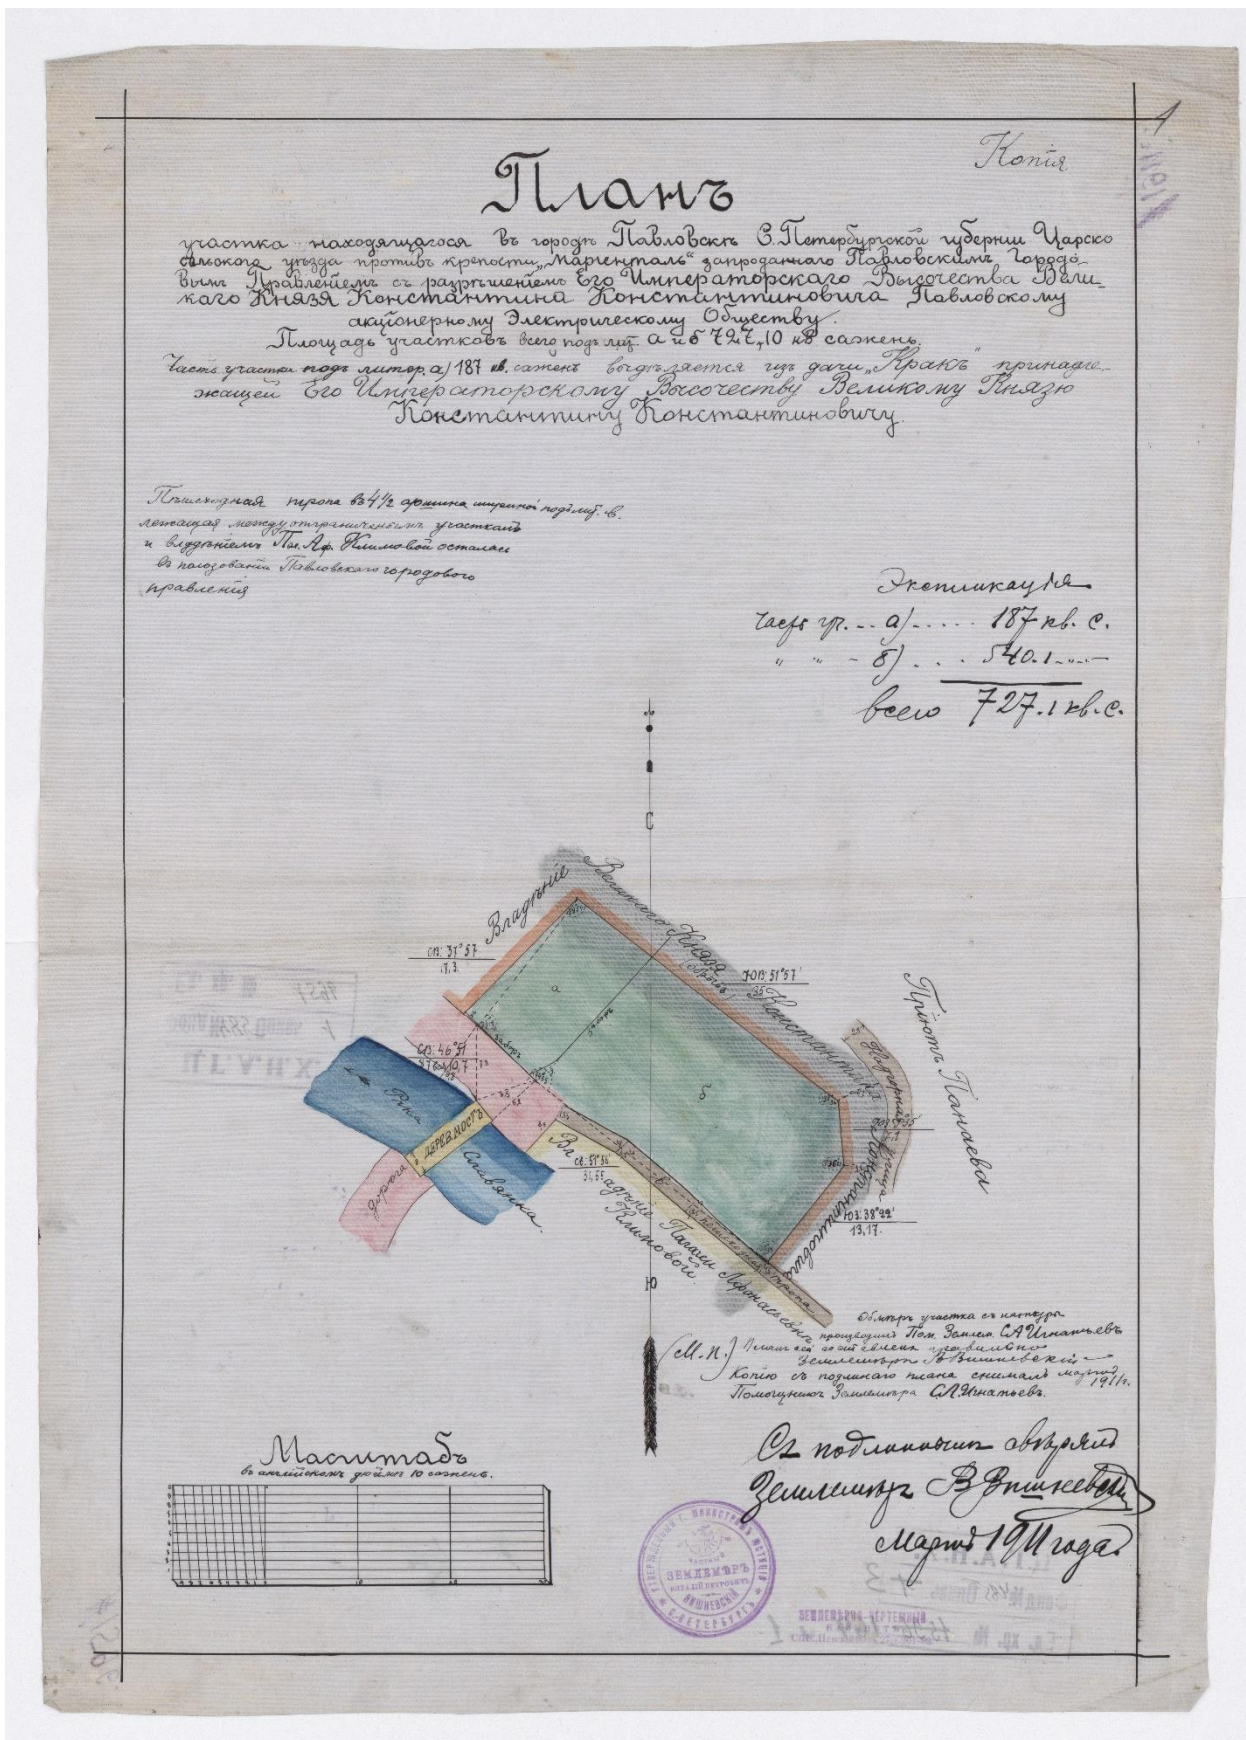 Копія
Планъ
участка находящагося въ городѣ Павловскѣ С.Петербургской губерніи Царско
сельскаго уѣзда противъ крѣпости „Маріенталь“ запроданнаго Павловскимъ Городо-
вымъ Правленіемъ съ разрѣшеніемъ Его Императорскаго Высочества Вели-
каго Князя Константина Константиновича Павловскому
акціонерному Электрическому Обществу.
Площадь участковъ всего подъ лит. а и б 727,10 кв сажень.
Часть участка подъ литер. а) 187 кв. сажень выдѣляется изъ дачи „Кракъ“ принадле-
жащей Его Императорскому Высочеству Великому Князю
Константину Константиновичу.
Пѣшеходная тропа въ 4½ аршина шириной подъ лит. в.
лежащая между отграниченнымъ участкомъ
и владѣніемъ Пел. Аф. Климовой осталась
въ пользованіи Павловскаго городового
правленія
Экспликація
Часть уч. - - а) . . . . . 187 кв. с.
„ „ - б) . . . 540.1 - „ -
всего 727.1 кв. с.
С
Владѣніе Великаго Князя Константина Константиновича
СВ: 37°57'
17,3.
ЮВ: 51°57'
35
(обрывъ)
Пріютъ Панаева
Надгорная улица
а
заборъ
заборъ
СЗ: 46°51'
10,7
б
Рѣка
Славянка.
ДЕРЕВ. МОСТЪ
дорога
СЗ: 51°56'
Владѣніе Пелагеи Афанасьевны
Климовой.
в
пѣшеходная тропа
ЮЗ: 38°22'
13,17.
Ю
Обмѣръ участка съ натуры
производилъ Пом. Землем. С А Игнатьевъ
(М.п.) Планъ сей составленъ правильно
Землемѣръ В Вишневскій
Копію съ подлиннаго плана снималъ мартъ 1911 г.
Помощникъ Землемѣра С.А. Игнатьевъ.
Масштабъ
въ англійскомъ дюймѣ 10 сажень.
Съ подлиннымъ свѣрялъ
Землемѣръ В Вишневскій
Мартъ 1911 года
ЧАСТНЫЙ
ЗЕМЛЕМѢРЪ
ВИШНЕВСКІЙ
С.ПЕТЕРБУРГЪ
ЗЕМЛЕМѢРНО-ЧЕРТЕЖНЫЙ